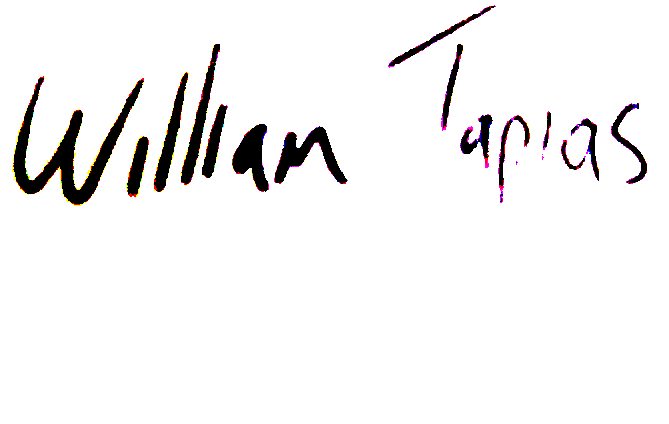 William Tapias